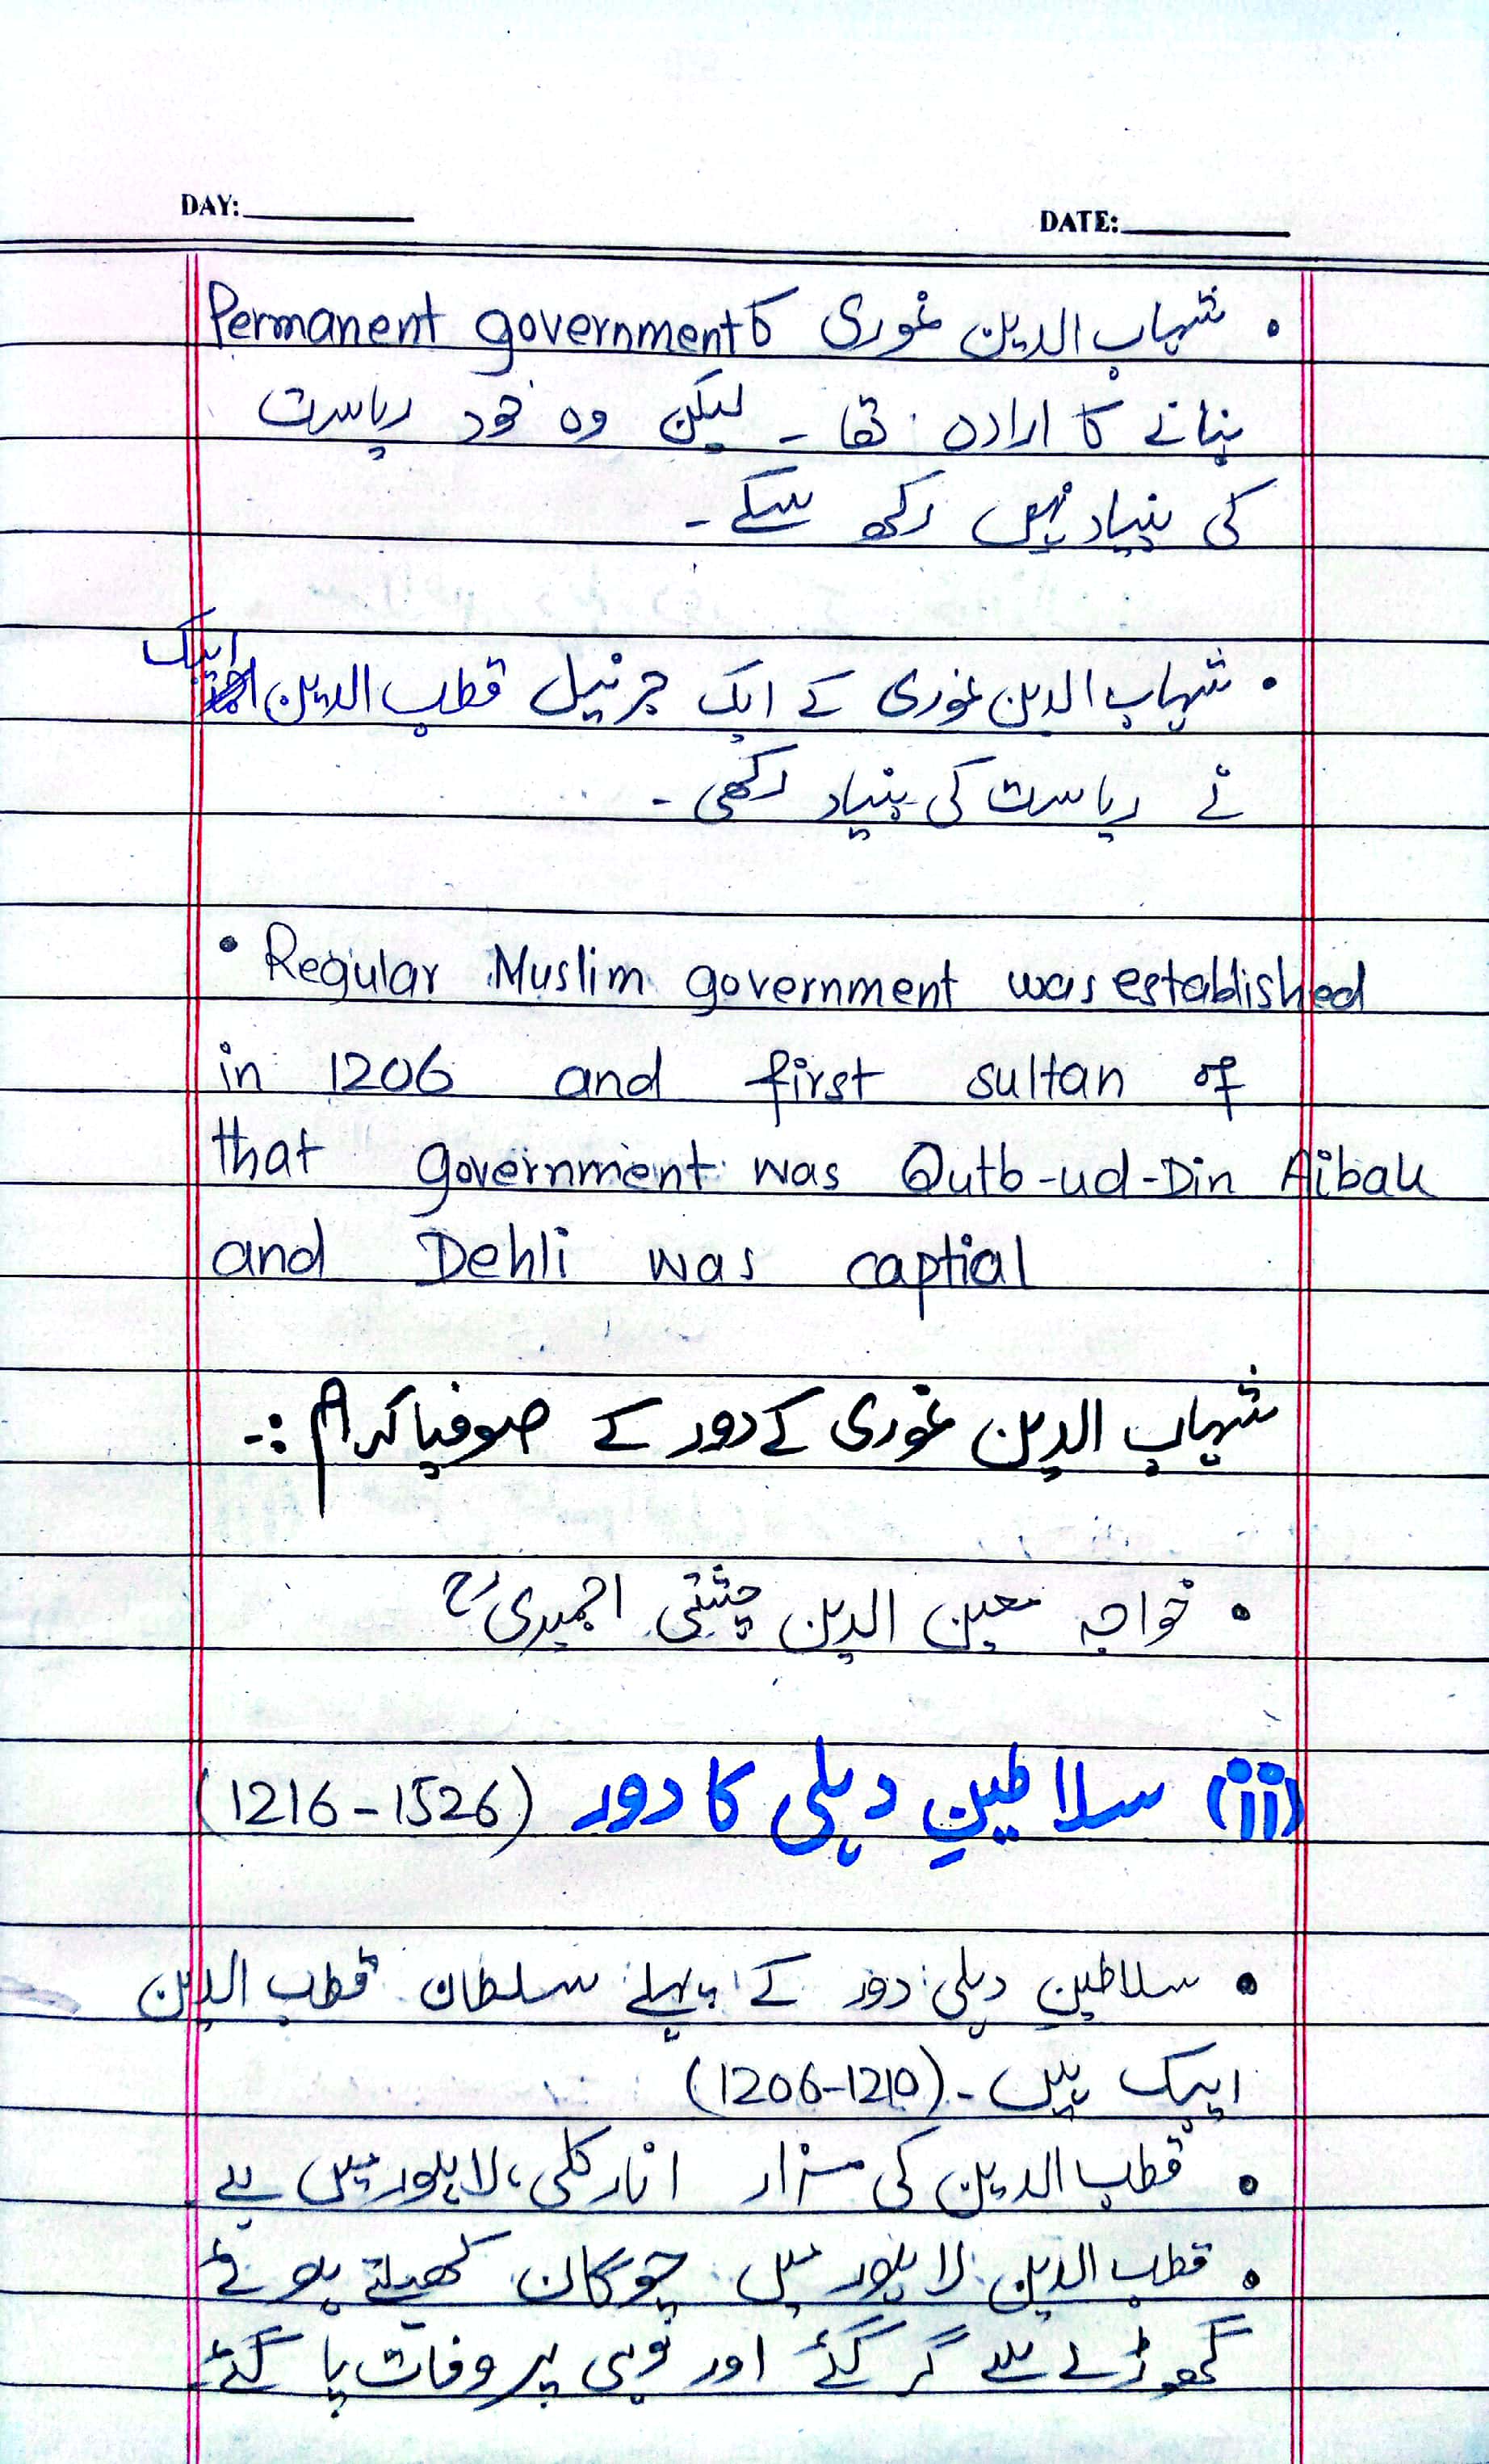 DAY: DATE:
• شہاب الدین غوری کا Permanent government
بنانے کا ارادہ تھا۔ لیکن وہ خود ریاست
کی بنیاد نہیں رکھ سکے۔
ایبک
• شہاب الدین غوری کے ایک جرنیل قطب الدین
نے ریاست کی بنیاد رکھی۔
• Regular Muslim government was established
in 1206 and first sultan of
that government was Qutb-ud-Din Aibak
and Dehli was captial
شہاب الدین غوری کے دور کے صوفیا کرام :-
• خواجہ معین الدین چشتی اجمیریؒ
(ii) سلاطینِ دہلی کا دور (1216-1526)
• سلاطینِ دہلی دور کے پہلے سلطان قطب الدین
ایبک ہیں۔ (1206-1210)
• قطب الدین کی مزار انارکلی، لاہور میں ہے
• قطب الدین لاہور میں چوگان کھیلتے ہوئے
گھوڑے سے گر گئے اور وہی پر وفات پا گئے۔